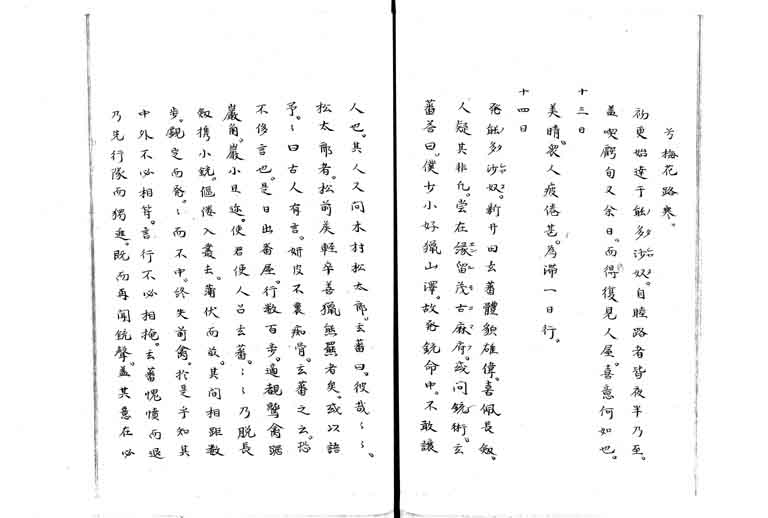 兮梅花路寒。
初更始達于能多沙奴。自睦路者皆夜半乃至。
盖喫虧旬又余日。而得復見人屋。喜意何如也。
十三日
美晴。衆人疲倦甚。為滞一日行。
十四日
発能多沙奴。新井曰玄蕃體貌雄偉。喜佩長釼。
人疑其非凡。嘗在縁留茂古麻府。或問銃術。玄
蕃答曰。僕少小好獵山澤。故発銃命中。不敢讓
人也。其人又問木村松太郎。玄蕃曰。彼哉〻〻。
松太郎者。松前矦輕卒善獵熊羆者矣。或以語
予。〻曰古人有言。妍皮不裹痴骨。玄蕃之云。恐
不侈言也。是日出番屋。行数百歩。適觀鷙禽踞
巖角。巖小且迩。便君使人召玄蕃。〻〻乃脱長
釼携小銃。傴僂入叢去。蒲伏而前。其間相距数
歩。覘定而発。〻而不中。終失前禽。於是乎知其
中外不必相符。言行不必相掩。玄蕃愧憤而退
乃先行隊而獨進。既而再聞銃聲。盖其意在必